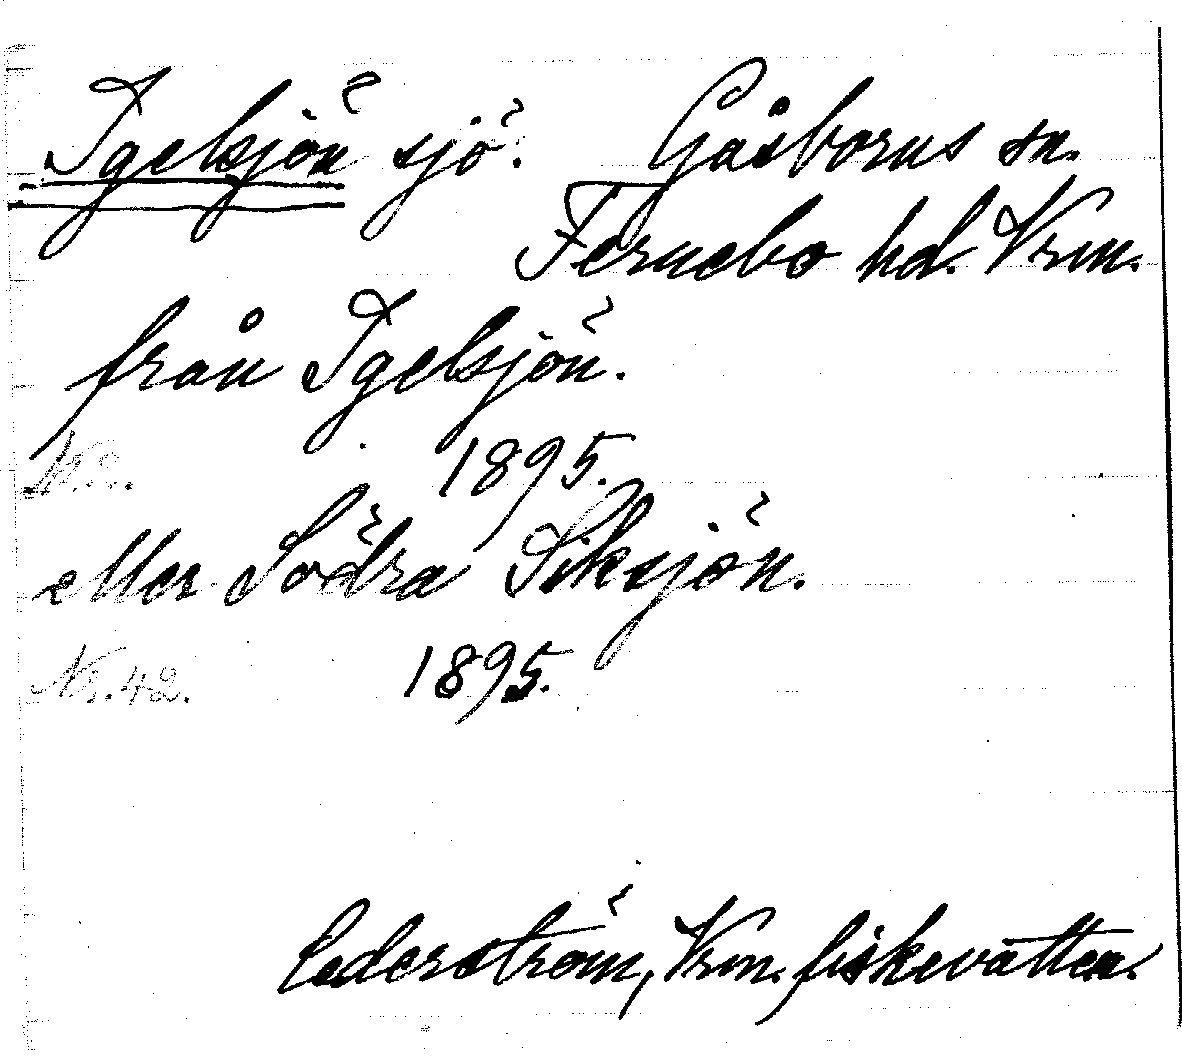 Igelsjön sjö. Gåsborns sn.
Fernebo hd. Vrm.
från Igelsjön.
1895.
eller Södra Siksjön.
Nr. 42. 1895.
Cederström, Vrm. fiskevatten.